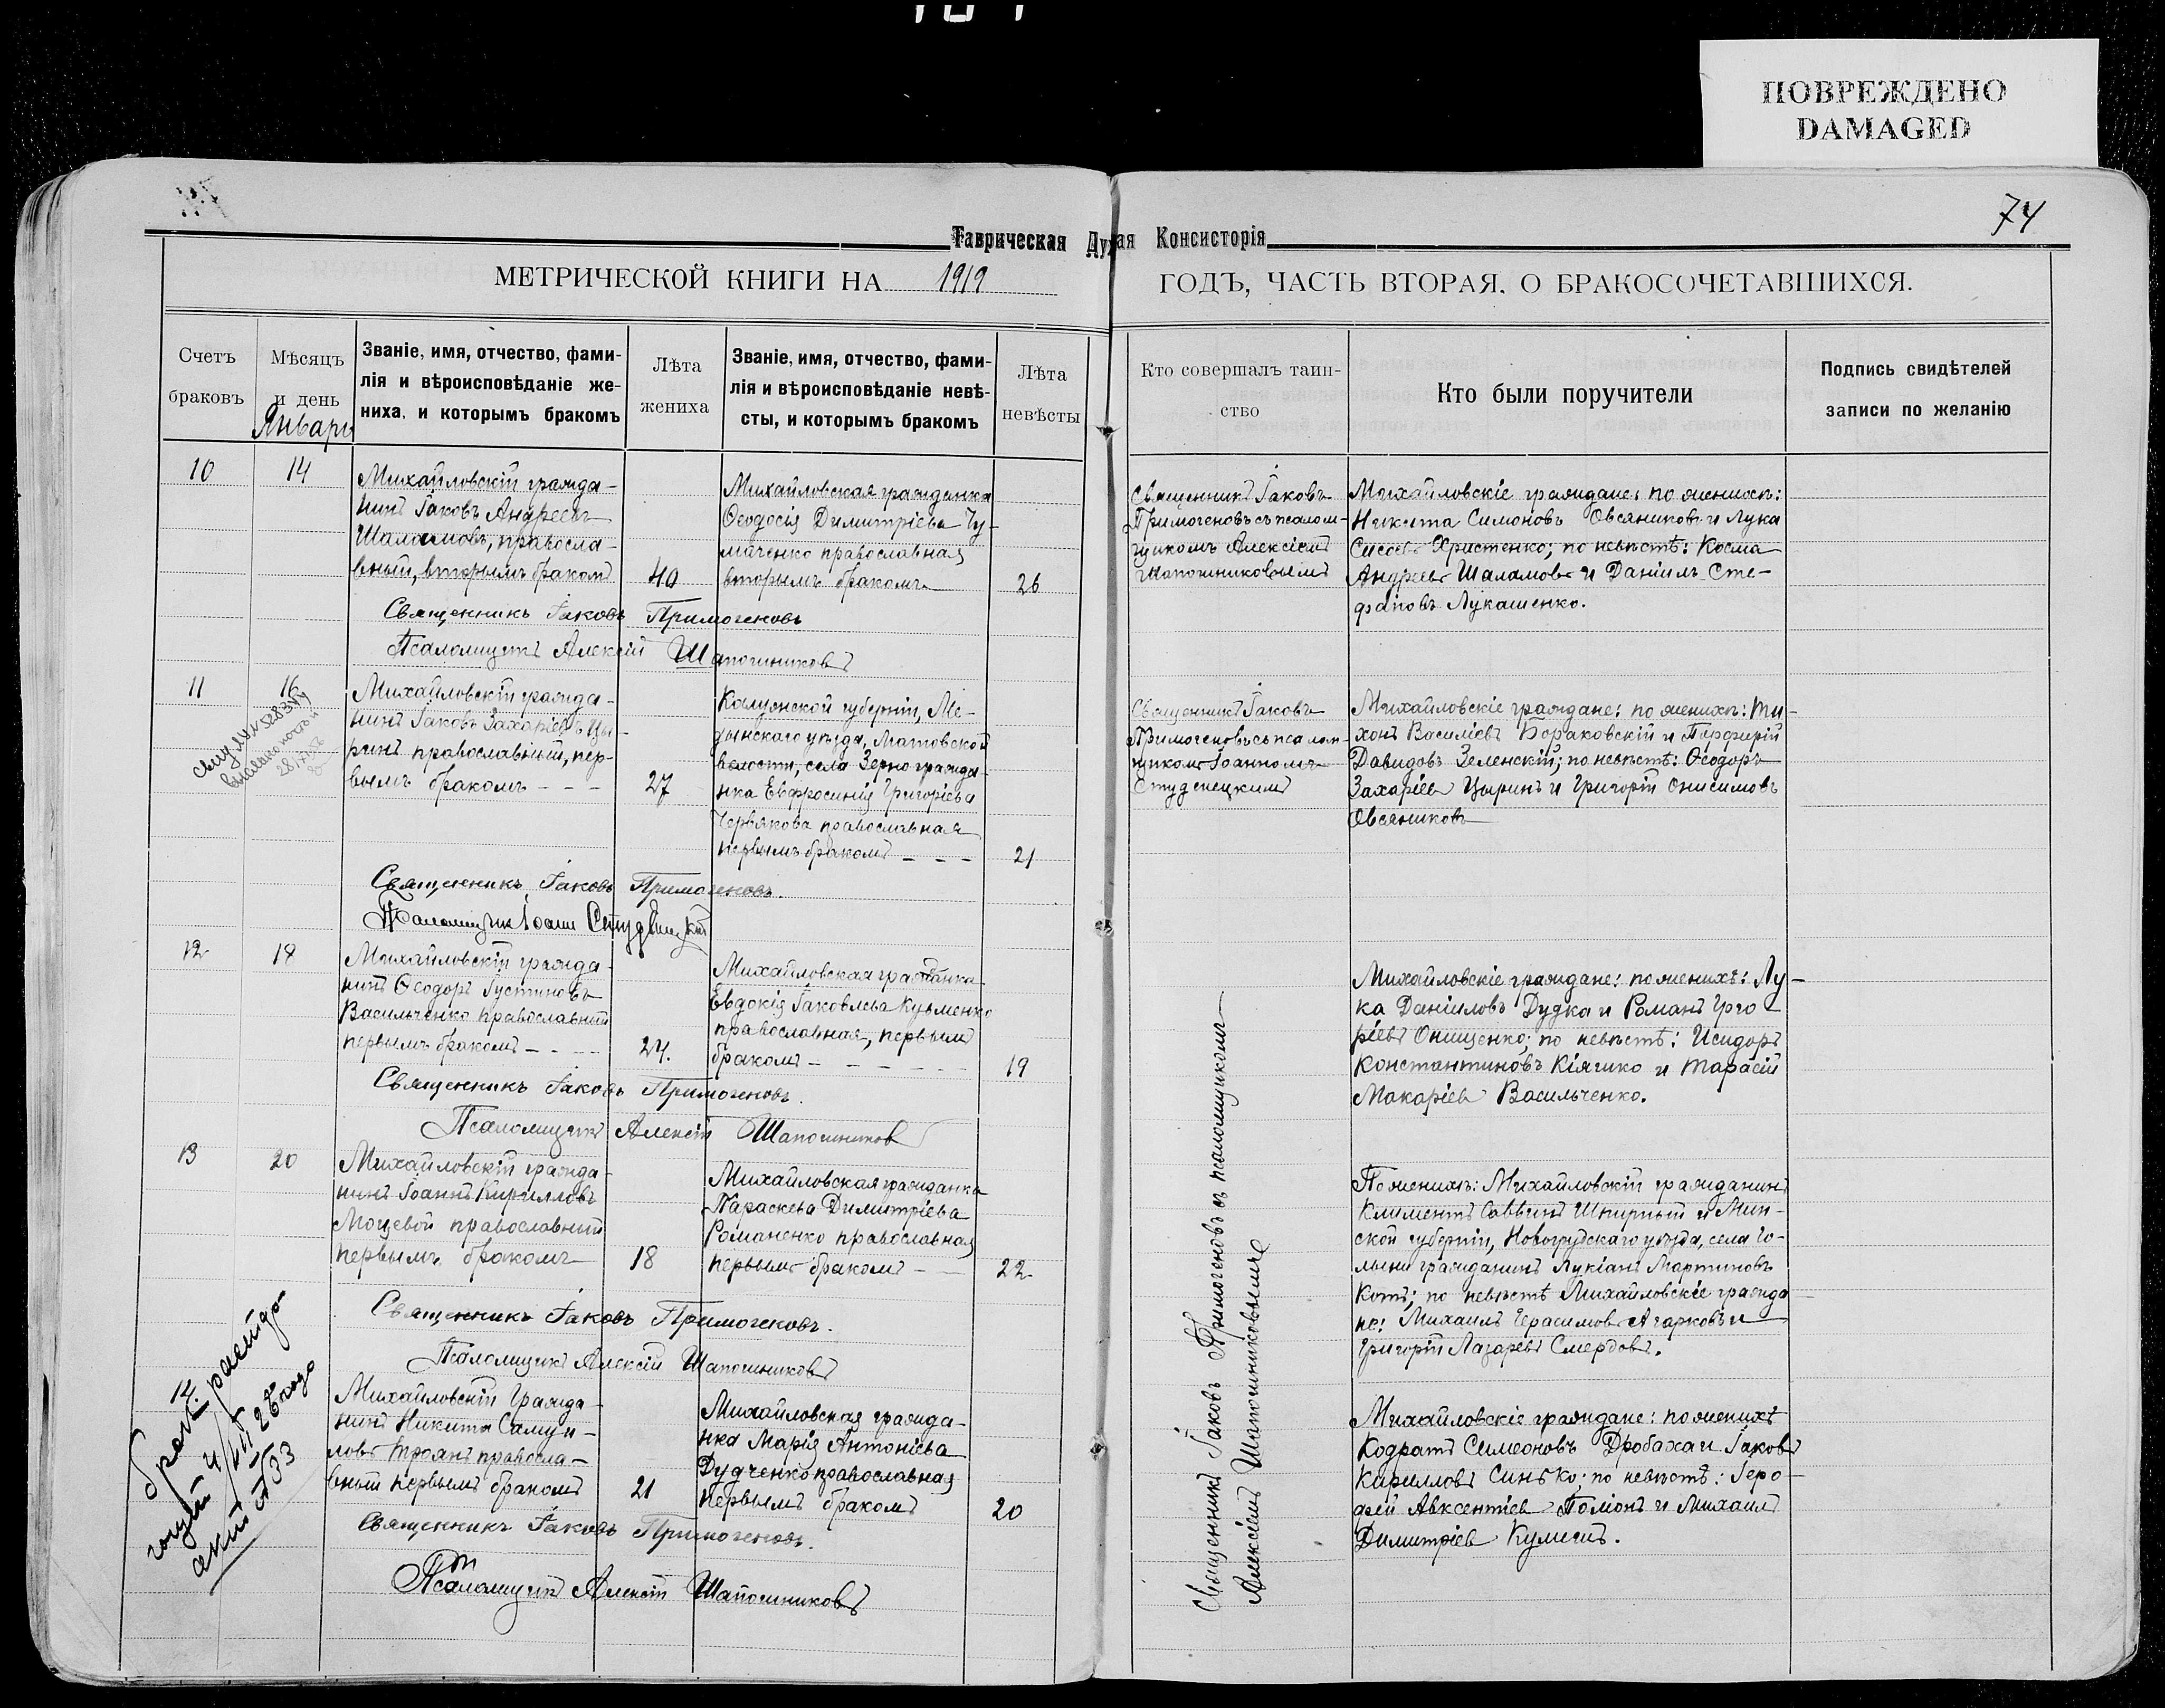 ПОВРЕЖДЕНО
DAMAGED
74
Таврическая Дух̶ая Консисторія
МЕТРИЧЕСКОЙ КНИГИ НА 1919 ГОДЪ, ЧАСТЬ ВТОРАЯ, О БРАКОСОЧЕТАВШИХСЯ.
Счетъ
браковъ
Мѣсяцъ
и день
Январь
Званіе, имя, отчество, фами-
лія и вѣроисповѣданіе же-
ниха, и которымъ бракомъ
Лѣта
жениха
Званіе, имя, отчество, фами-
лія и вѣроисповѣданіе невѣ-
сты, и которымъ бракомъ
Лѣта
невѣсты
Кто совершалъ таин-
ство
Кто были поручители
Подпись свидѣтелей
записи по желанію
10
14
Михайловскій гражда-
нинъ Іаковъ Андреевъ
Шаламовъ, правосла-
вный, вторымъ бракомъ
40
Михайловская гражданка
Ѳеодосія Димитріева Чу-
маченко православная
вторымъ бракомъ
26
Священникъ Іаковъ
Примогеновъ съ псалом-
щикомъ Алексіемъ
Шапошниковымъ
Михайловскіе граждане: по женихѣ:
Никита Симоновъ Овсяниковъ и Лука
Сысоевъ Христенко; по невѣстѣ: Косма
Андреевъ Шаламовъ и Даніилъ Сте-
фановъ Лукашенко.
Священникъ Іаковъ Примогеновъ
Псаломщикъ Алексій Шапошниковъ
11
16
Михайловскій гражда-
нинъ Іаковъ Захаріевъ Цы-
ринъ православный, пер-
вымъ бракомъ - - -
27
Калужской губерніи, Ме-
дынскаго уѣзда, Матовской
волости, села Зерно гражда-
нка Евфросинія Григоріева
Червякова православная
первымъ бракомъ - - -
21
Священникъ Іаковъ
Примогеновъ съ псалом-
щикомъ Іоанномъ
Студенецкимъ
Михайловскіе граждане: по женихѣ: Ти-
хонъ Василіевъ Бораковскій и Порфирій
Давидовъ Зеленскій; по невѣстѣ: Ѳеодоръ
Захаріевъ Цыринъ и Григорій Онисимовъ
Овсяниковъ
Священникъ Іаковъ Примогеновъ.
Псаломщикъ Іоаннъ
12
18
Михайловскій гражда-
нинъ Ѳеодоръ Іустиновъ
Васильченко православный
первымъ бракомъ - - -
24.
Михайловская гражданка
Евдокія Іаковлева Кузьменко
православная, первымъ
бракомъ - - - - -
19
Михайловскіе граждане: по женихѣ: Лу-
ка Даніиловъ Дудка и Романъ Григо
ріевъ Онищенко; по невѣстѣ: Исидоръ
Константиновъ Кіяшко и Тарасій
Макаріевъ Васильченко.
Священникъ Іаковъ Примогеновъ.
Псаломщикъ Алексій Шапошниковъ
13
20
Михайловскій гражда-
нинъ Іоаннъ Кирилловъ
Моцевой православный
первымъ бракомъ
18
Михайловская гражданка
Параскева Димитріева
Романенко православная
первымъ бракомъ -
22
По женихѣ: Михайловскій гражданинъ
Климентъ Саввинъ Шпирный и Мин-
ской губерніи, Новогрудскаго уѣзда, села
гражданинъ Лукіанъ Мартиновъ
Котъ; по невѣстѣ Михайловскіе гражда
не: Михаилъ Герасимовъ Агарковъ и
Григорій Лазаревъ Смердовъ.
Священникъ Іаковъ Примогеновъ съ псаломщикомъ
Алексіемъ Шапошниковымъ
Священникъ Іаковъ Примогеновъ.
Псаломщикъ Алексій Шапошниковъ
14.
Михайловскій гражда-
нинъ Никита Самуи-
ловъ Троянъ правосла-
вный первымъ бракомъ
21
Михайловская гражда-
нка Марія Антоніева
Дудченко православная
первымъ бракомъ
20
Михайловскіе граждане: по женихѣ
Кодратъ Симеоновъ Дробаха и Іаковъ
Кирилловъ Синько; по невѣстѣ: Іеро-
фей Авксентіевъ Поліонъ и Михаилъ
Димитріевъ Кумечъ.
Священникъ Іаковъ Примогеновъ.
Псаломщикъ Алексій Шапошниковъ